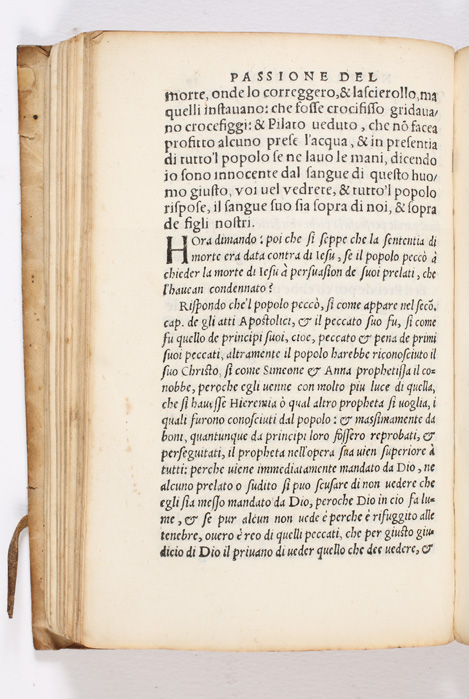 PASSIONE DEL
morte, onde lo correggero, & lascierollo, ma
quelli instauano: che fosse crocifisso gridaua/
no crocefiggi: & Pilato ueduto, che nõ facea
profitto alcuno prese l'acqua, & in presentia
di tutto'l popolo se ne lauo le mani, dicendo
io sono innocente dal sangue di questo huo/
mo giusto, voi uel vedrete, & tutto'l popolo
rispose, il sangue suo sia sopra di noi, & sopra
de figli nostri.
HOra dimando: poi che si seppe che la sententia di
morte era data contra di Iesu, se il popolo peccò à
chieder la morte di Iesu à persuasion de suoi prelati, che
l'haueан condennato?
Rispondo che'l popolo peccò, si come appare nel secõ.
cap. de gli atti Apostolici, & il peccato suo fu, si come
fu quello de principi suoi, cioe, peccato & pena de primi
suoi peccati, altramente il popolo harebbe riconosciuto il
suo Christo, si come Simeone & Anna prophetissa il co-
nobbe, peroche egli uenne con molto piu luce di quella,
che si hauesse Hieremia ò qual altro propheta si uoglia, i
quali furono conosciuti dal popolo: & massimamente da
boni, quantunque da principi loro fossero reprobati, &
perseguitati, il propheta nell'opera sua uien superiore à
tutti: perche uiene immediatamente mandato da Dio, ne
alcuno prelato o sudito si puo scusare di non uedere che
egli sia messo mandato da Dio, peroche Dio in cio fa lu-
me, & se pur alcun non uede è perche è rifuggito alle
tenebre, ouero è reo di quelli peccati, che per giusto giu-
dicio di Dio il priuano di ueder quello che dee uedere, &